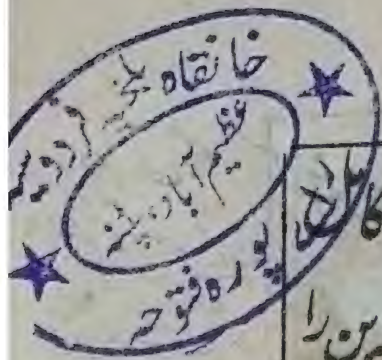 خانقاه بلخیہ فردوسیہ
عظیم آباد پٹنہ
پورہ فتوحہ
را